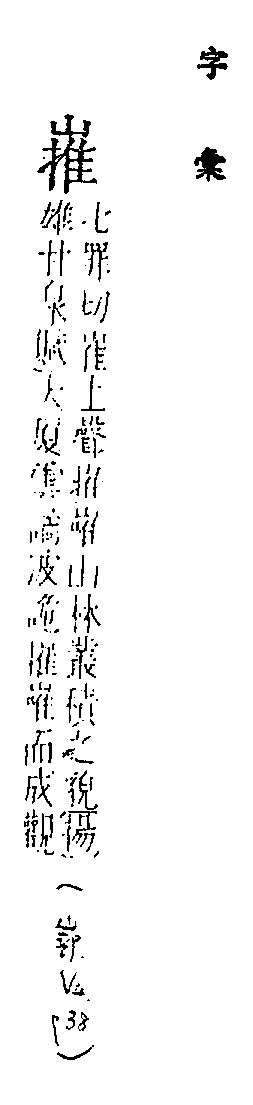 字彙
嶊
七罪切崔上聲嶊嶉山林叢積之貌揚
雄甘泉賦大廈雲譎波詭嶊嶉而成觀
(山部
V4
P38)